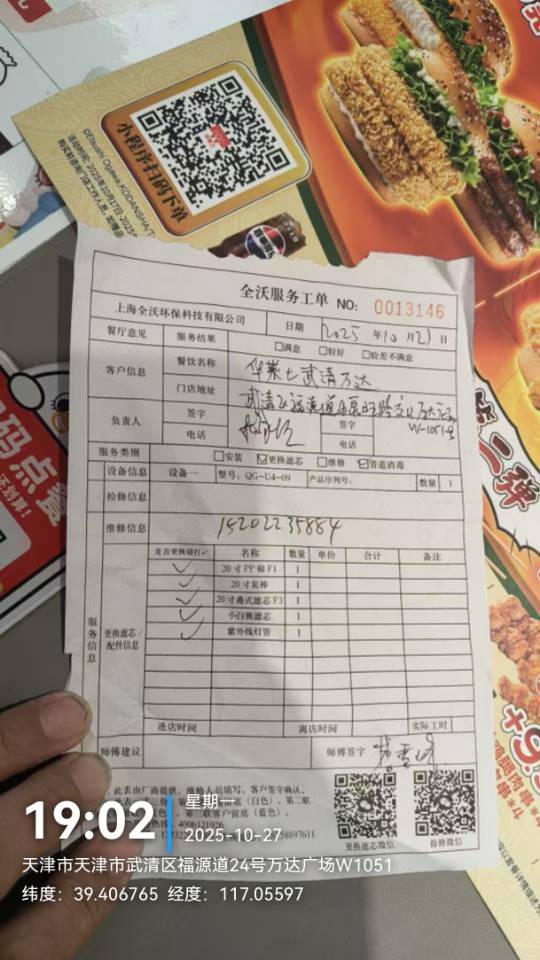 小程序扫码下单
码点餐
还到算!
第二弹
全沃服务工单 NO: 0013146
上海全沃环保科技有限公司 日期 2025 年 10 月 27 日
餐厅意见 服务结果 □满意 □较好 □较差不满意
客户信息 餐饮名称 华莱士武清万达
门店地址 武清区福源道
W-1051号
负责人 签字 签字
电话 电话
服务类别 □安装 ☑更换滤芯 □维修 ☑管道消毒
设备信息 设备一 型号: QG-U4-09 产品序列号: 数量 1
检修信息
维修信息 15202235884
服务信息
更换滤芯/配件信息
是否更换请打✓ 名称 数量 单价 合计 备注
✓ 20寸PP棉F1 1
✓ 20寸炭棒 1
✓ 20寸叠式滤芯F3 1
✓ 小白熊滤芯 1
✓ 紫外线灯管 1
进店时间 离店时间 实际工时
师傅建议 师傅签字
此表由厂商提供,维修人员填写,客户签字确认。
底(白色),第二联
第三联客户留底(蓝色)。
4006121926
58897611
更换滤芯微信 报修微信
19:02
星期一
2025-10-27
天津市天津市武清区福源道24号万达广场W1051
纬度: 39.406765 经度: 117.05597